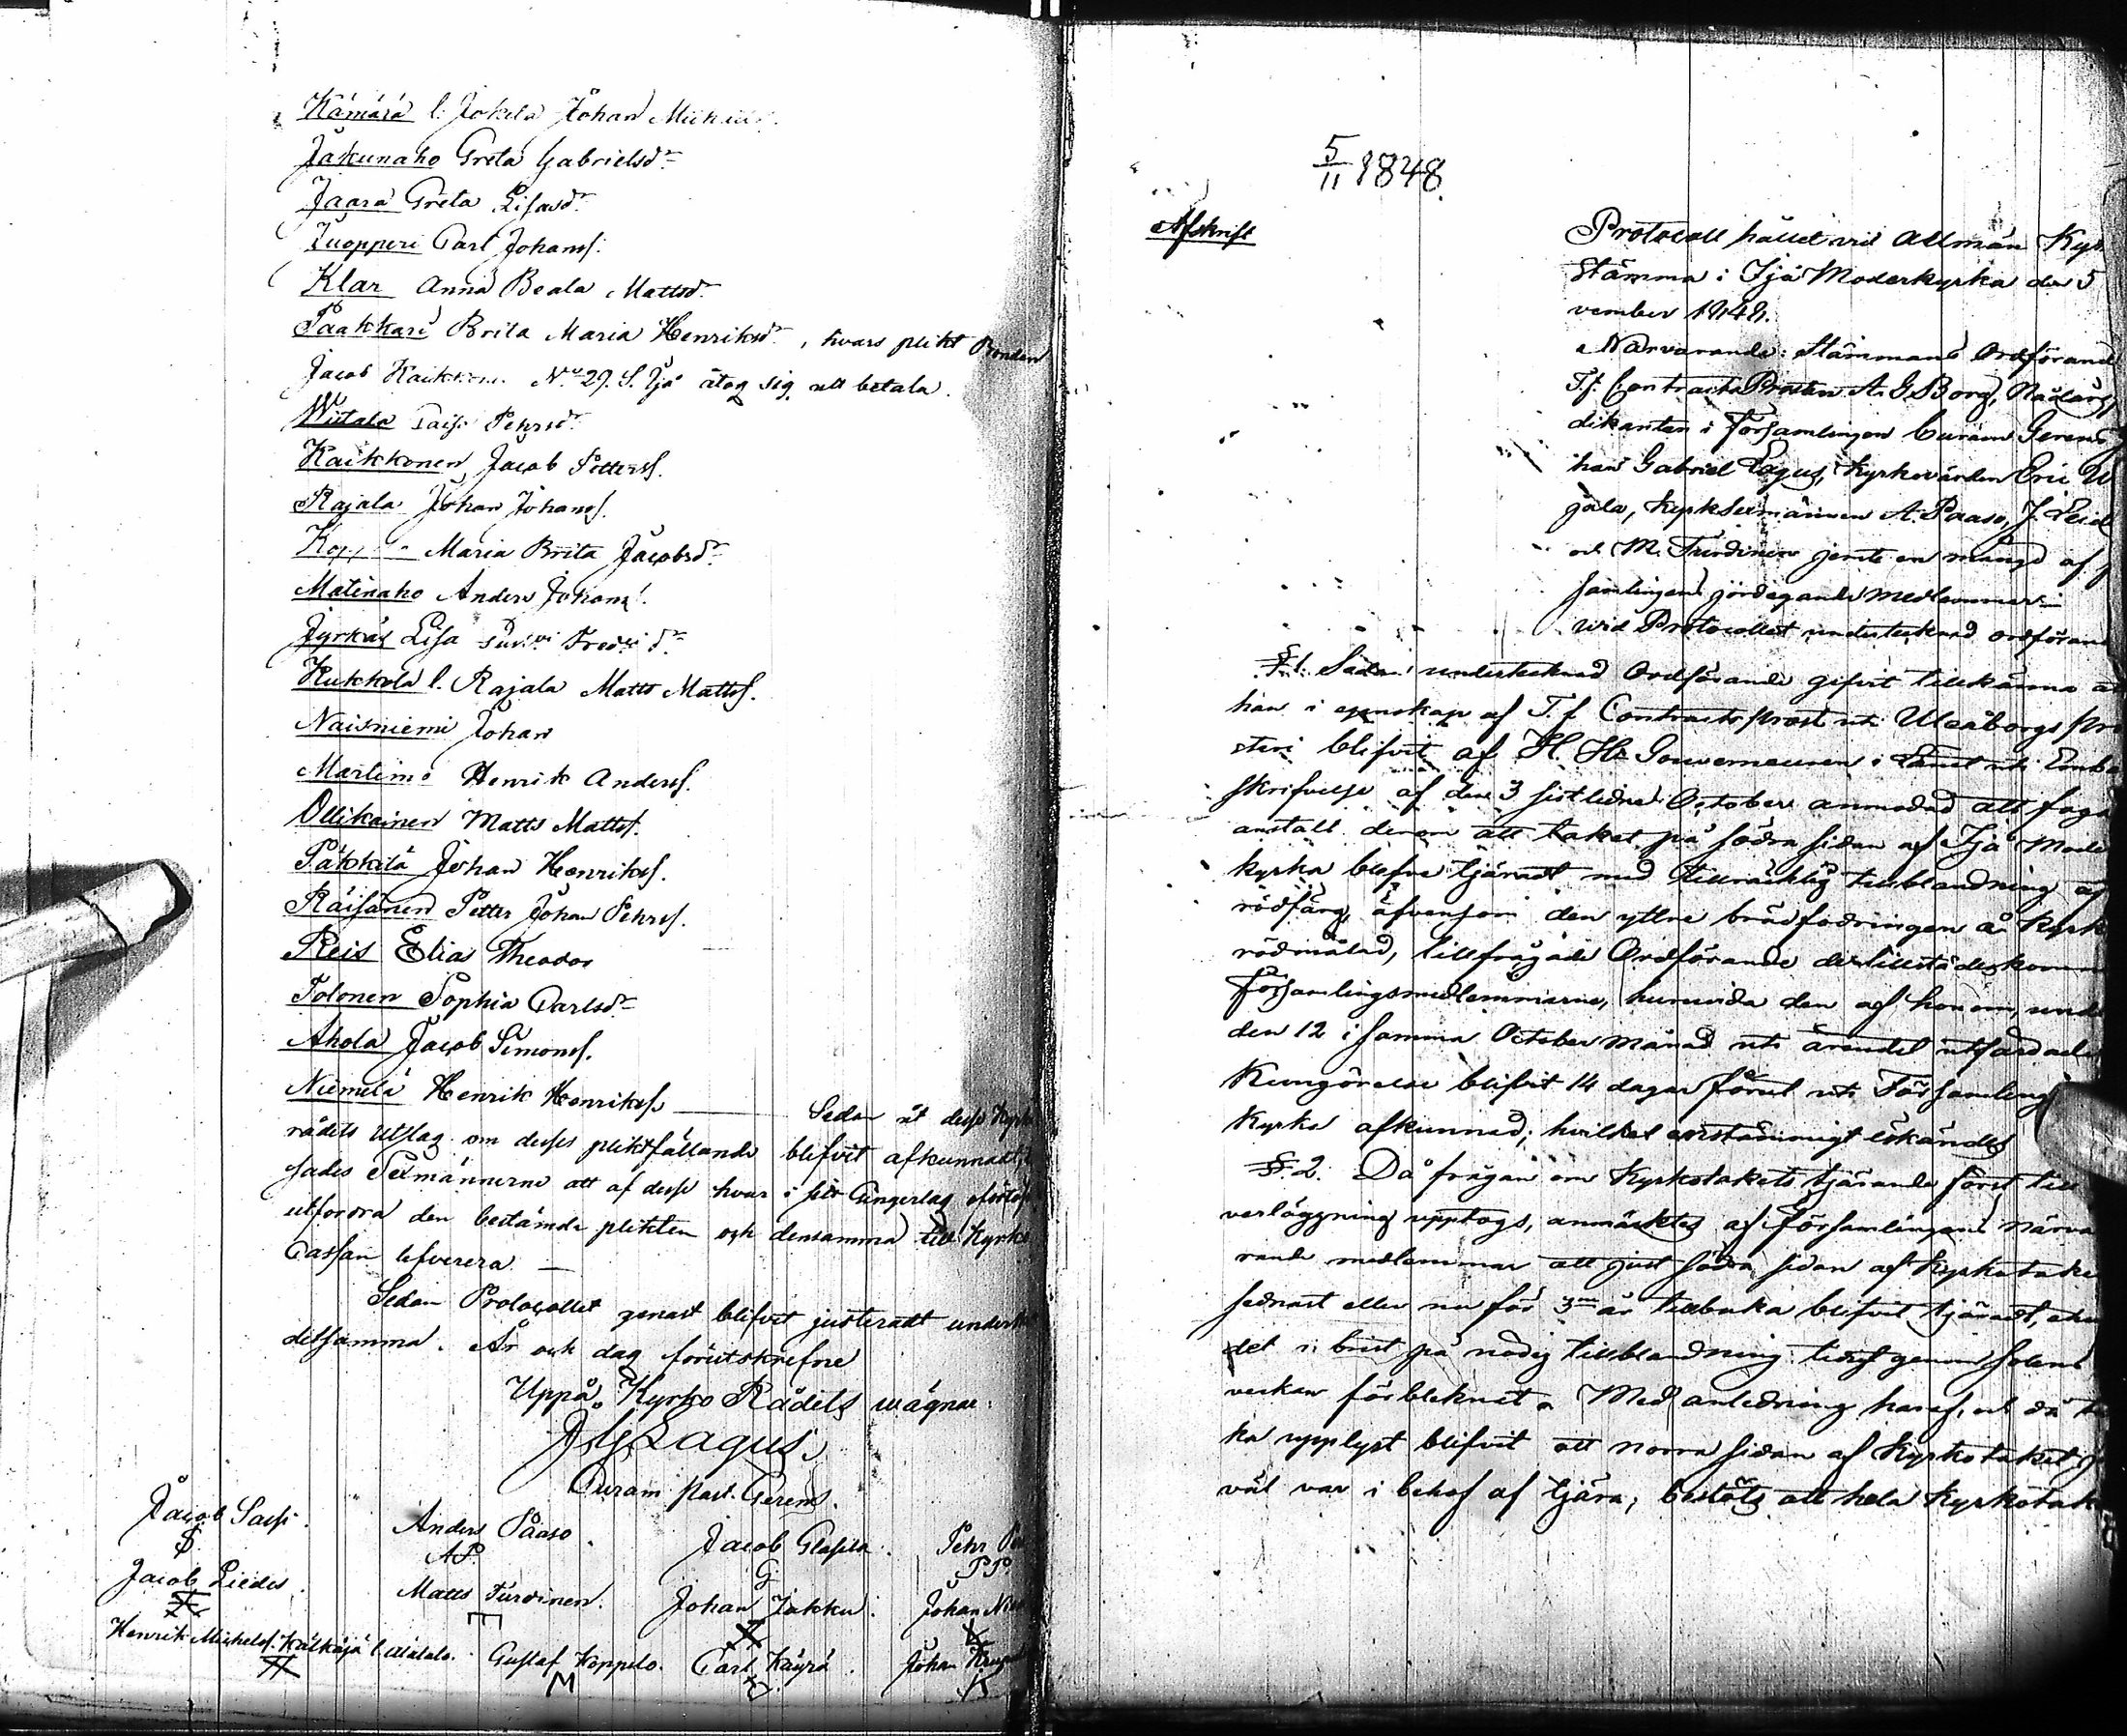 Kämärä l. Jokela Johan Michelss.
Jakunaho Greta Gabrielsdr
Jaara Greta Lisasdr
Juopperi Carl Johanss.
Klar Anna Beata Mattsdr
Paakkari Brita Maria Henriksdr, hvars plikt Bonden
Jacob Kaikkonen No 29. S. Ijo åtog sig att betala.
Wiitala Caisa Pehrsdr
Kaikkonen Jacob Petterss.
Rajala Johan Johanss.
Maria Brita Jacobsdr
Matinaho Anders Johanss.
Jyrkäs Lisa
Kukkola l. Rajala Matts Mattss.
Naisniemi Johan
Martimo Henrik Anderss.
Ollikainen Matts Mattss.
Päkkilä Johan Henrikss.
Räisänen Petter Johan Pehrss.
Reis Elias Theodor
Tolonen Sophia Carlsdr
Ahola Jacob Simonss.
Niemelä Henrik Henrikss. — Sedan åt desse Kyrko
rådets Utslag om desses pliktfällande blifvit afkunnadt,
sades Sexmännerne att af desse hvar i sitt Gingerlag
utfordra den bestämde plikten och densamma till Kyrko
Cassan lefverera —
Sedan Protocollet genast blifvit justeradt
detsamma. År och dag förutskrefne
Uppå Kyrko Rådets wägnar:
J G Lagus.
Curam Past. Gerens.
Jacob Sassi. Anders Paaso. Jacob Glasila. Pehr
S. AP. G. PP.
Jacob Liedes. Matts Turdinen. Johan Jakku. Johan
Henrik Michelss. Kälkäjä l. Alatalo. Gustaf Koppelo. Carl Käyrä. Johan
M K
5/11 1848.
Afskrift
Protocoll hållet vid Allmän Kyr
stämma i Ijo Moderkyrka den 5
vember 1848.
Närvarande: Stämmans Ordförand
T.f. Contracts Prosten A. G Borg, Nådårs
dikanten i Församlingen Curam Gerens
han Gabriel Lagus, Kyrkovärden Eric
jala, Kyrksexmännen A. Paaso, J.
och M. Turdinen jemte en mängd af
samlingens jordägande medlemmar
wid Protocollet undertecknad ordföran
§ 1. Sedan undertecknad Ordförande gifvit tillkänna at
han i egenskap af T.f Contracts prost uti Uleåborgs pro
steri blifvit af H. Hr Gouverneuren i Länet uti Embe
skrifvelse af den 3 sistledne October anmodad att foga
anstalt derom att taket på södra sidan af Ijo Mode
kyrka blefve tjäradt med tillräcklig tillblandning af
rödfärg, äfvensom den yttre brädfodringen å Kyrk
rödmålad, tillfrågade Ordförande de tillstädeskomm
Församlingsmedlemmarne, huruvida den af honom und
den 12 i samma October månad uti ärendet utfärdade
Kungörelse blifvit 14 dagar förut uti Församling
Kyrka afkunnad; hvilket enstämmigt erkändes
§ 2. Då frågan om Kyrkotakets tjärande först till
verläggning upptogs, anmärktes af Församlingens närva
rande medlemmar att just södra sidan af Kyrkotake
sednast eller nu för 3ne år tillbaka blifvit tjäradt,
det i brist på nödig tillblandning tidigt genom solens
verkan förbleknat. Med anledning häraf, och då
ka upplyst blifvit att norra sidan af Kyrkotaket
väl var i behof af tjära, beslöts att hela Kyrkotak